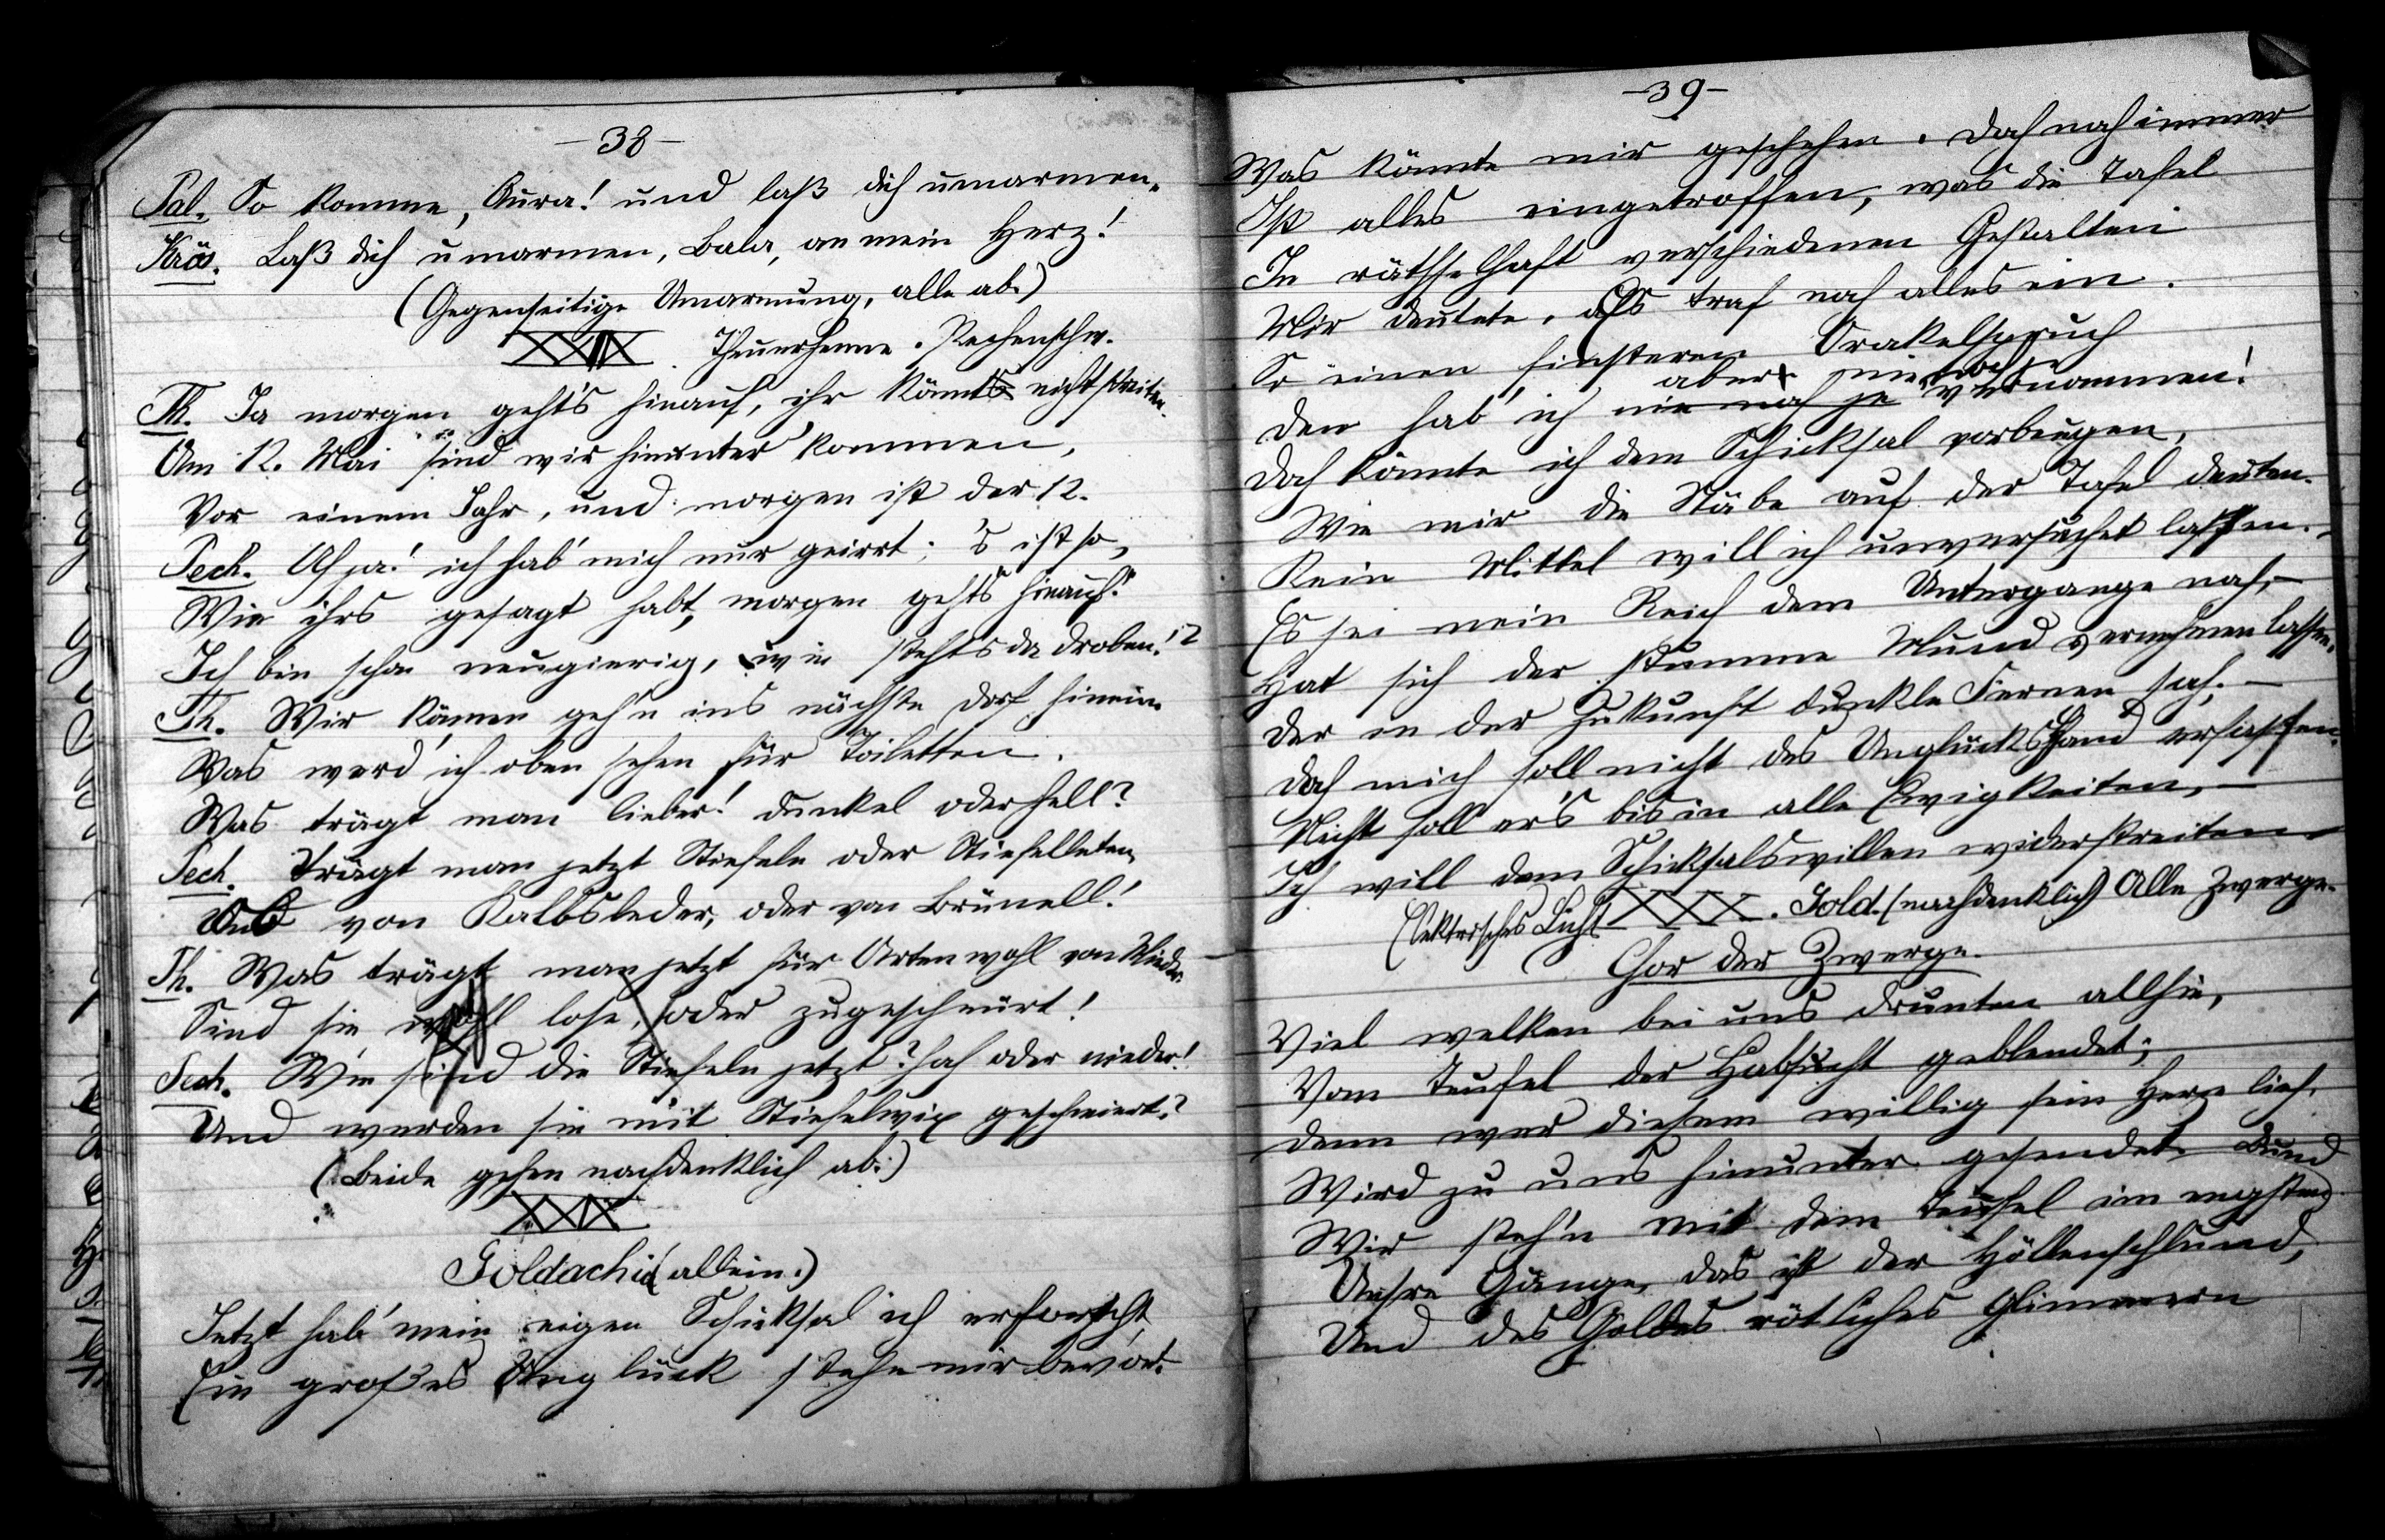 -38-
Pal. So komme, Aura! und laß dich umarmen.
Krös. Laß dich umarmen, Bala, an mein Herz!
(Gegenseitige Umarmung, alle ab.)
XXIIX Theuerhenne. Pechenschw.
Th. Ja morgen geht's hinauf, ihr könnts nicht streiten.
Am 12. Mai sind wir hinunter kommen,
Vor einem Jahr, und morgen ist der 12.
Pech. Ah ja! ich hab' mich nur geirrt; 's ist so,
Wie ihrs gesagt habt, morgen geht's hinauf.
Ich bin schon neugierig, wie steht's da droben!?
Th. Wir können geh'n ins nächste Dorf hinein.
Was werd' ich oben sehen für Toiletten.
Was trägt man lieber! dunkel oder hell?
Pech. Trägt man jetzt Stiefeln oder Stiefelleten,
Und von Kalbsleder, oder von Brünell!
Th. Was trägt man jetzt für Arten wohl von Mieder.
Sind sie wohl lose, oder zugeschnürt!
Pech. Wie sind die Stiefeln jetzt? hoch oder nieder!
Und werden sie mit Stiefelwix geschmiert?
(Beide gehen nachdenklich ab.)
XXIX
Goldachid (allein.)
Jetzt hab' mein eigen Schicksal ich erforscht,
Ein großes Unglück stehe mir bevor.
-39-
Was könnte mir geschehen. Doch noch immer
Ist alles eingetroffen, was die Tafel
In räthselhaft verschiedenen Gestalten
Mir deutete. Es traf noch alles ein.
So einen finsteren Orakelspruch
aber nie noch
Den hab' ich nie noch je vernommen!
Doch könnte ich dem Schicksal vorbeugen,
Wie mir die Stäbe auf der Tafel deuten.
Kein Mittel will ich unversuchet lassen.
Es sei mein Reich dem Untergange nah, –
Hat sich der stumme Mund vernehmen lassen,
Der in der Zukunft dunkle Fernen sah; –
Doch mich soll nicht des Unglücks Hand erfassen.
Nicht soll er's bis in alle Ewigkeiten, –
Ich will dem Schicksalswillen widerstreiten
Elektrisches Licht XXX. Gold. (nachdenklich) Alle Zwerge.
Chor der Zwerge.
Viel welken bei uns drunten allhie,
Vom Teufel der Habsucht geblendet;
Denn wer diesem willig sein Herze lieh,
Wird zu uns hinunter gesendet. Bund
Wir steh'n mit dem Teufel im engsten
Unsre Gänge, das ist der Höllenschlund,
Und des Goldes rötliches Glimmern